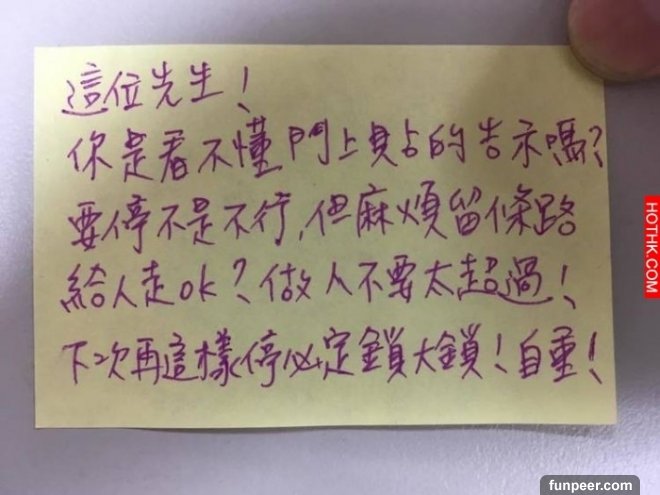 這位先生！
你是看不懂門上貼的告示嗎？
要停不是不行，但麻煩留條路
給人走ok？做人不要太超過！
下次再這樣停必定鎖大鎖！自重！
HOTHK.COM
funpeer.com